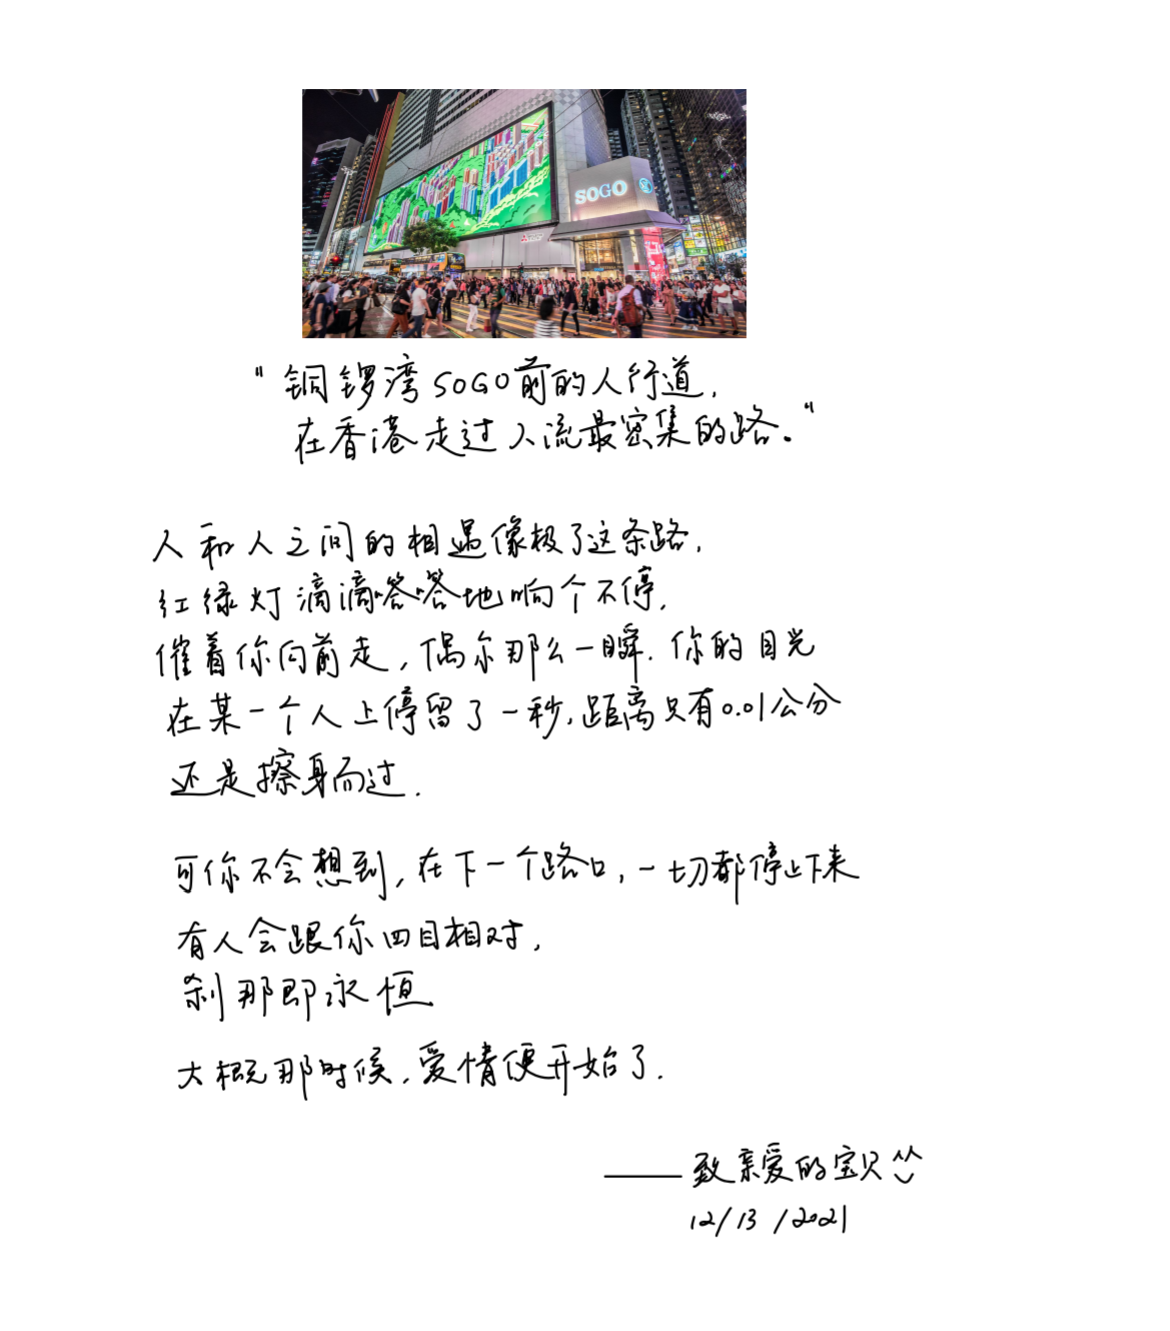 SOGO
"铜锣湾SOGO前的人行道,
在香港走过人流最密集的路。"
人和人之间的相遇像极了这条路,
红绿灯滴滴嗒嗒地响个不停,
催着你向前走,偶尔那么一瞬.你的目光
在某一个人上停留了一秒,距离只有0.01公分
还是擦身而过.
可你不会想到,在下一个路口,一切都停止下来
有人会跟你四目相对,
刹那即永恒
大概那时候,爱情便开始了.
——致亲爱的宝贝
12/13/2021